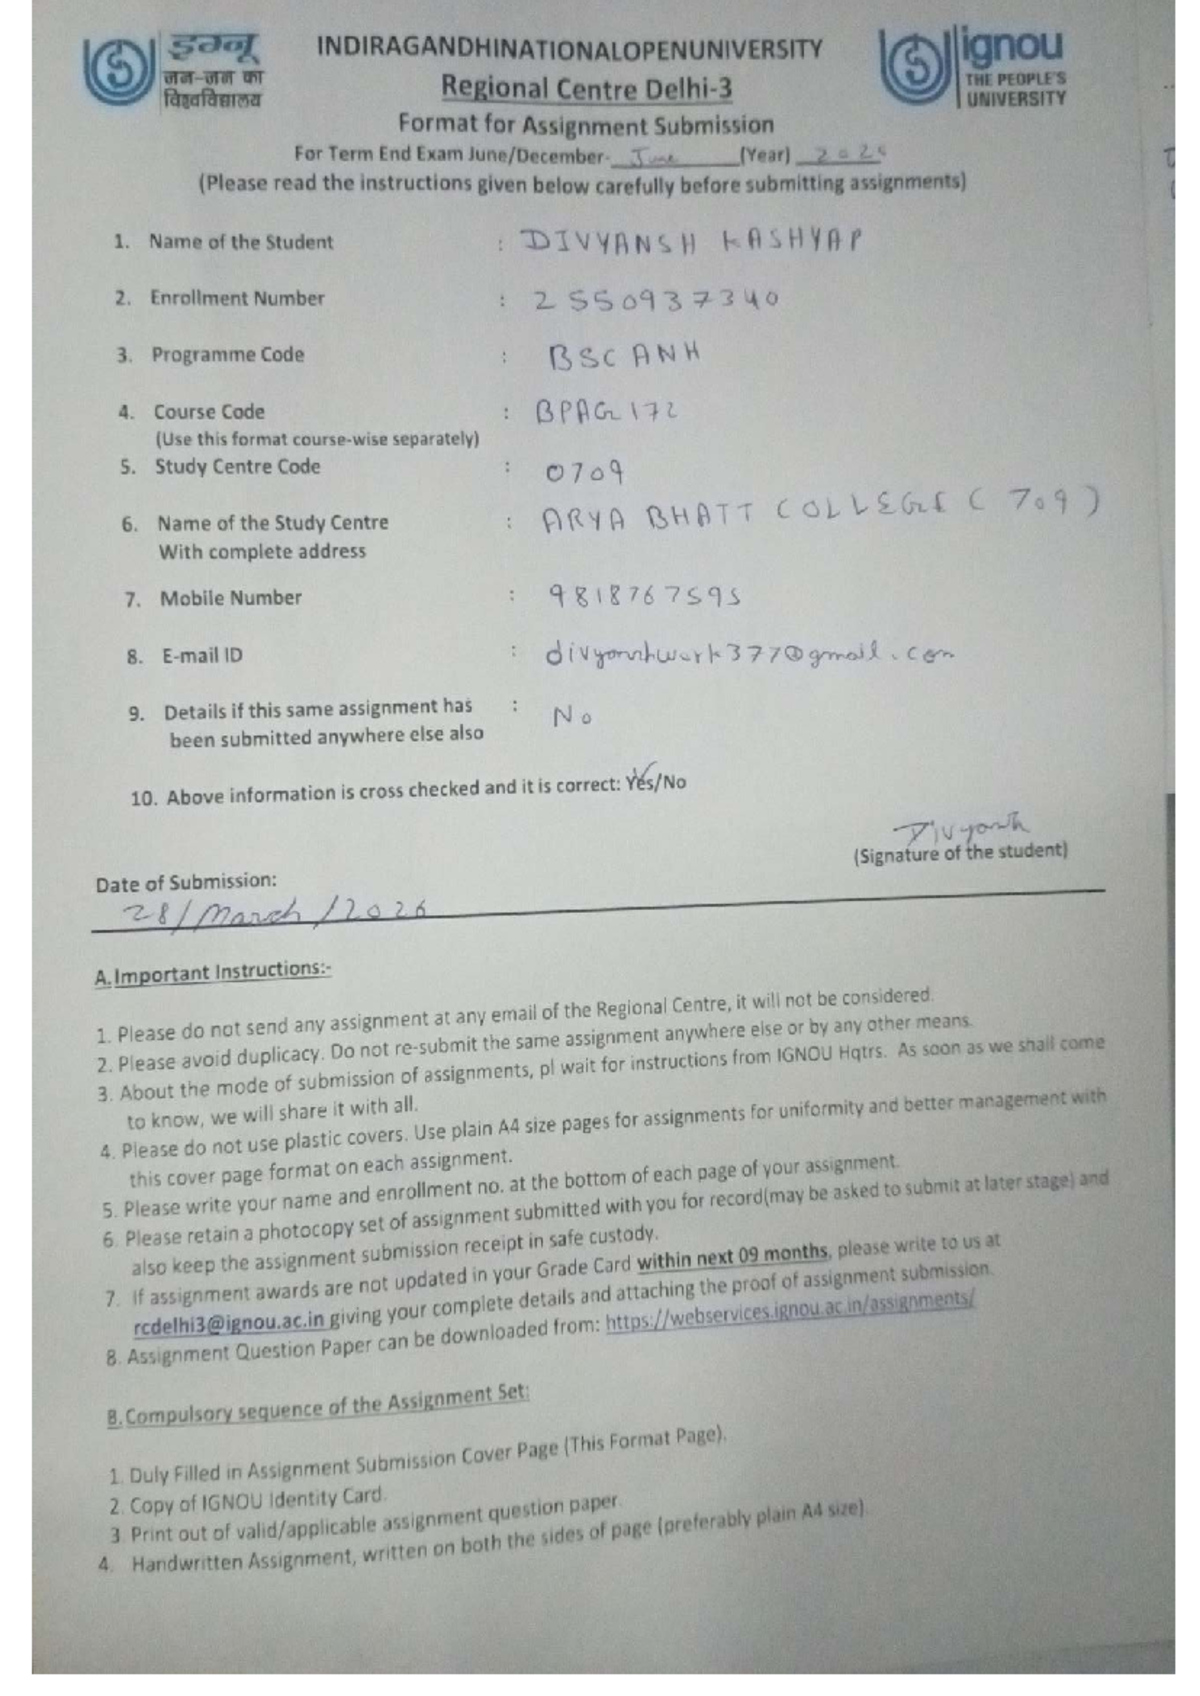 इग्नू
जन-जन का
विश्वविद्यालय
INDIRAGANDHINATIONALOPENUNIVERSITY
Regional Centre Delhi-3
ignou
THE PEOPLE'S
UNIVERSITY
Format for Assignment Submission
For Term End Exam June/December- June (Year)
(Please read the instructions given below carefully before submitting assignments)
1. Name of the Student : DIVYANSH KASHYAP
2. Enrollment Number : 2550937340
3. Programme Code : BSCANH
4. Course Code : BPAG172
(Use this format course-wise separately)
5. Study Centre Code : 0709
6. Name of the Study Centre : ARYA BHATT COLLEGE (709)
With complete address
7. Mobile Number : 9818767595
8. E-mail ID :
9. Details if this same assignment has : No
been submitted anywhere else also
10. Above information is cross checked and it is correct: Yes/No
Divyansh
(Signature of the student)
Date of Submission:
28/March/2026
A.Important Instructions:-
1. Please do not send any assignment at any email of the Regional Centre, it will not be considered.
2. Please avoid duplicacy. Do not re-submit the same assignment anywhere else or by any other means.
3. About the mode of submission of assignments, pl wait for instructions from IGNOU Hqtrs. As soon as we shall come
to know, we will share it with all.
4. Please do not use plastic covers. Use plain A4 size pages for assignments for uniformity and better management with
this cover page format on each assignment.
5. Please write your name and enrollment no. at the bottom of each page of your assignment.
6. Please retain a photocopy set of assignment submitted with you for record(may be asked to submit at later stage) and
also keep the assignment submission receipt in safe custody.
7. If assignment awards are not updated in your Grade Card within next 09 months, please write to us at
rcdelhi3@ignou.ac.in giving your complete details and attaching the proof of assignment submission.
8. Assignment Question Paper can be downloaded from: https://webservices.ignou.ac.in/assignments/
B.Compulsory sequence of the Assignment Set:
1. Duly Filled in Assignment Submission Cover Page (This Format Page).
2. Copy of IGNOU Identity Card.
3 Print out of valid/applicable assignment question paper.
4. Handwritten Assignment, written on both the sides of page (preferably plain A4 size).